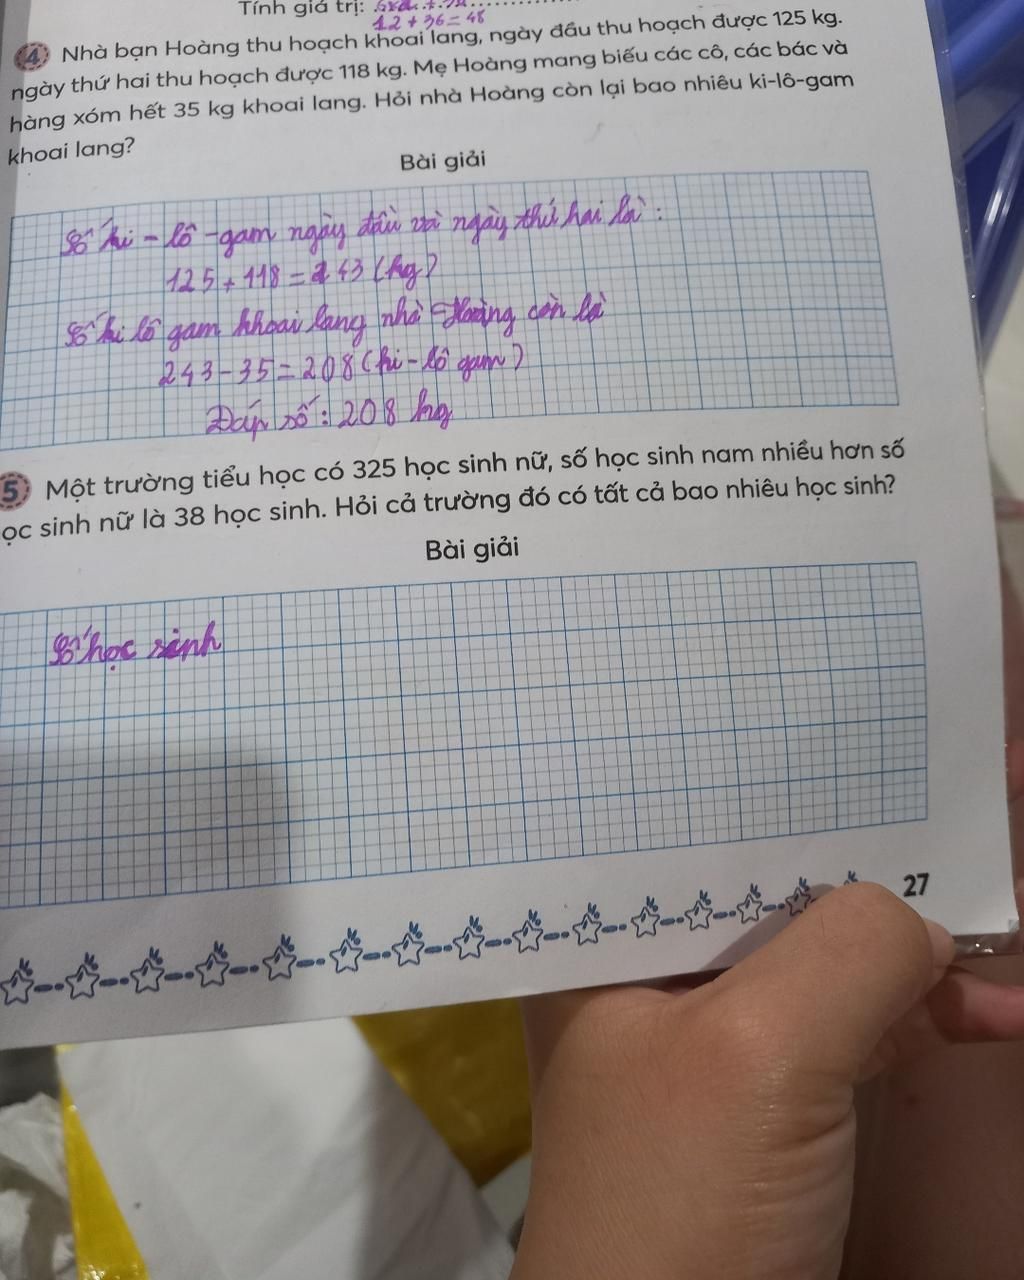 Tính giá trị:
12 + 36 = 48
4 Nhà bạn Hoàng thu hoạch khoai lang, ngày đầu thu hoạch được 125 kg.
ngày thứ hai thu hoạch được 118 kg. Mẹ Hoàng mang biếu các cô, các bác và
hàng xóm hết 35 kg khoai lang. Hỏi nhà Hoàng còn lại bao nhiêu ki-lô-gam
khoai lang?
Bài giải
Số ki-lô-gam ngày đầu và ngày thứ hai là:
125 + 118 = 243 (kg)
Số ki lô gam khoai lang nhà Hoàng còn là
243 - 35 = 208 (ki-lô gam)
Đáp số: 208 kg
5 Một trường tiểu học có 325 học sinh nữ, số học sinh nam nhiều hơn số
ọc sinh nữ là 38 học sinh. Hỏi cả trường đó có tất cả bao nhiêu học sinh?
Bài giải
Số học sinh
27